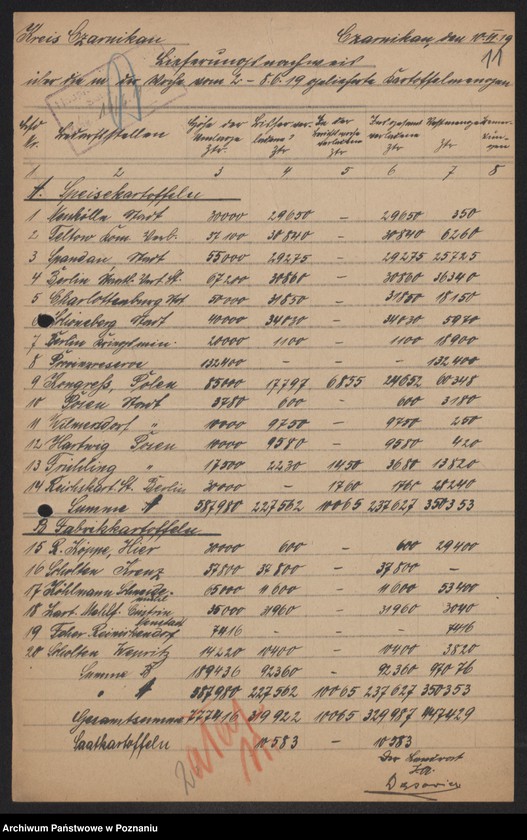 Kreis Czarnikau Czarnikau, den 10.VI.19
11
Lieferungsnachweis
über die in der Woche vom 2 – 8.6.19 gelieferte Kartoffelmengen
Lfd Nr. Bedarfsstellen Höhe der Umlage Ztr. Bisher verladen? Ztr In der Berichtswoche verladen Ztr Insgesamt verladene Ztr Restmenge Ztr Bemerkungen
1 2 3 4 5 6 7 8
A. Speisekartoffeln
1 Neukölln Stadt 30000 29650 – 29650 350
2 Teltow Kom. Verb. 37100 30840 – 30840 6260
3 Spandau Stadt 55000 29275 – 29275 25725
4 Berlin Vert. St. 67200 30860 – 30860 36340
5 Charlottenburg Stdt 50000 31850 – 31850 18150
Schöneberg Stadt 40000 34030 – 34030 5970
7 Berlin 20000 1100 – 1100 18900
8 Provinzreserve 132400 – – – 132400
9 Kongreß, Polen 85000 17797 6855 24652 60348
10 Posen Stadt 3780 600 – 600 3180
11 Wilmersdorf " 10000 9750 – 9750 250
12 Hartwig Posen 10000 9580 – 9580 420
13 " 17500 2230 1450 3680 13820
14 Reichskart. St. Berlin 30000 – 1760 1760 28240
Summe A 587980 227562 10065 237627 350353
B Fabrikkartoffeln
15 R. Koppe, Hier 30000 600 – 600 29400
16 Scholten Kreuz 37800 37800 – 37800 –
17 Köhlmann 65000 11600 – 11600 53400
18 Cüstrin 35000 31960 – 31960 3040
19 Reinickendorf 7416 – – – 7416
20 Scholten Wepritz 14220 10400 – 10400 3820
Summe B 189436 92360 – 92360 97076
" A 587980 227562 10065 237627 350353
Gesamtsumme 777416 319922 10065 329987 447429
Saatkartoffeln 10583 – 10583
Der Landrat
I.A.
Archiwum Państwowe w Poznaniu szukajwarchiwach.gov.pl